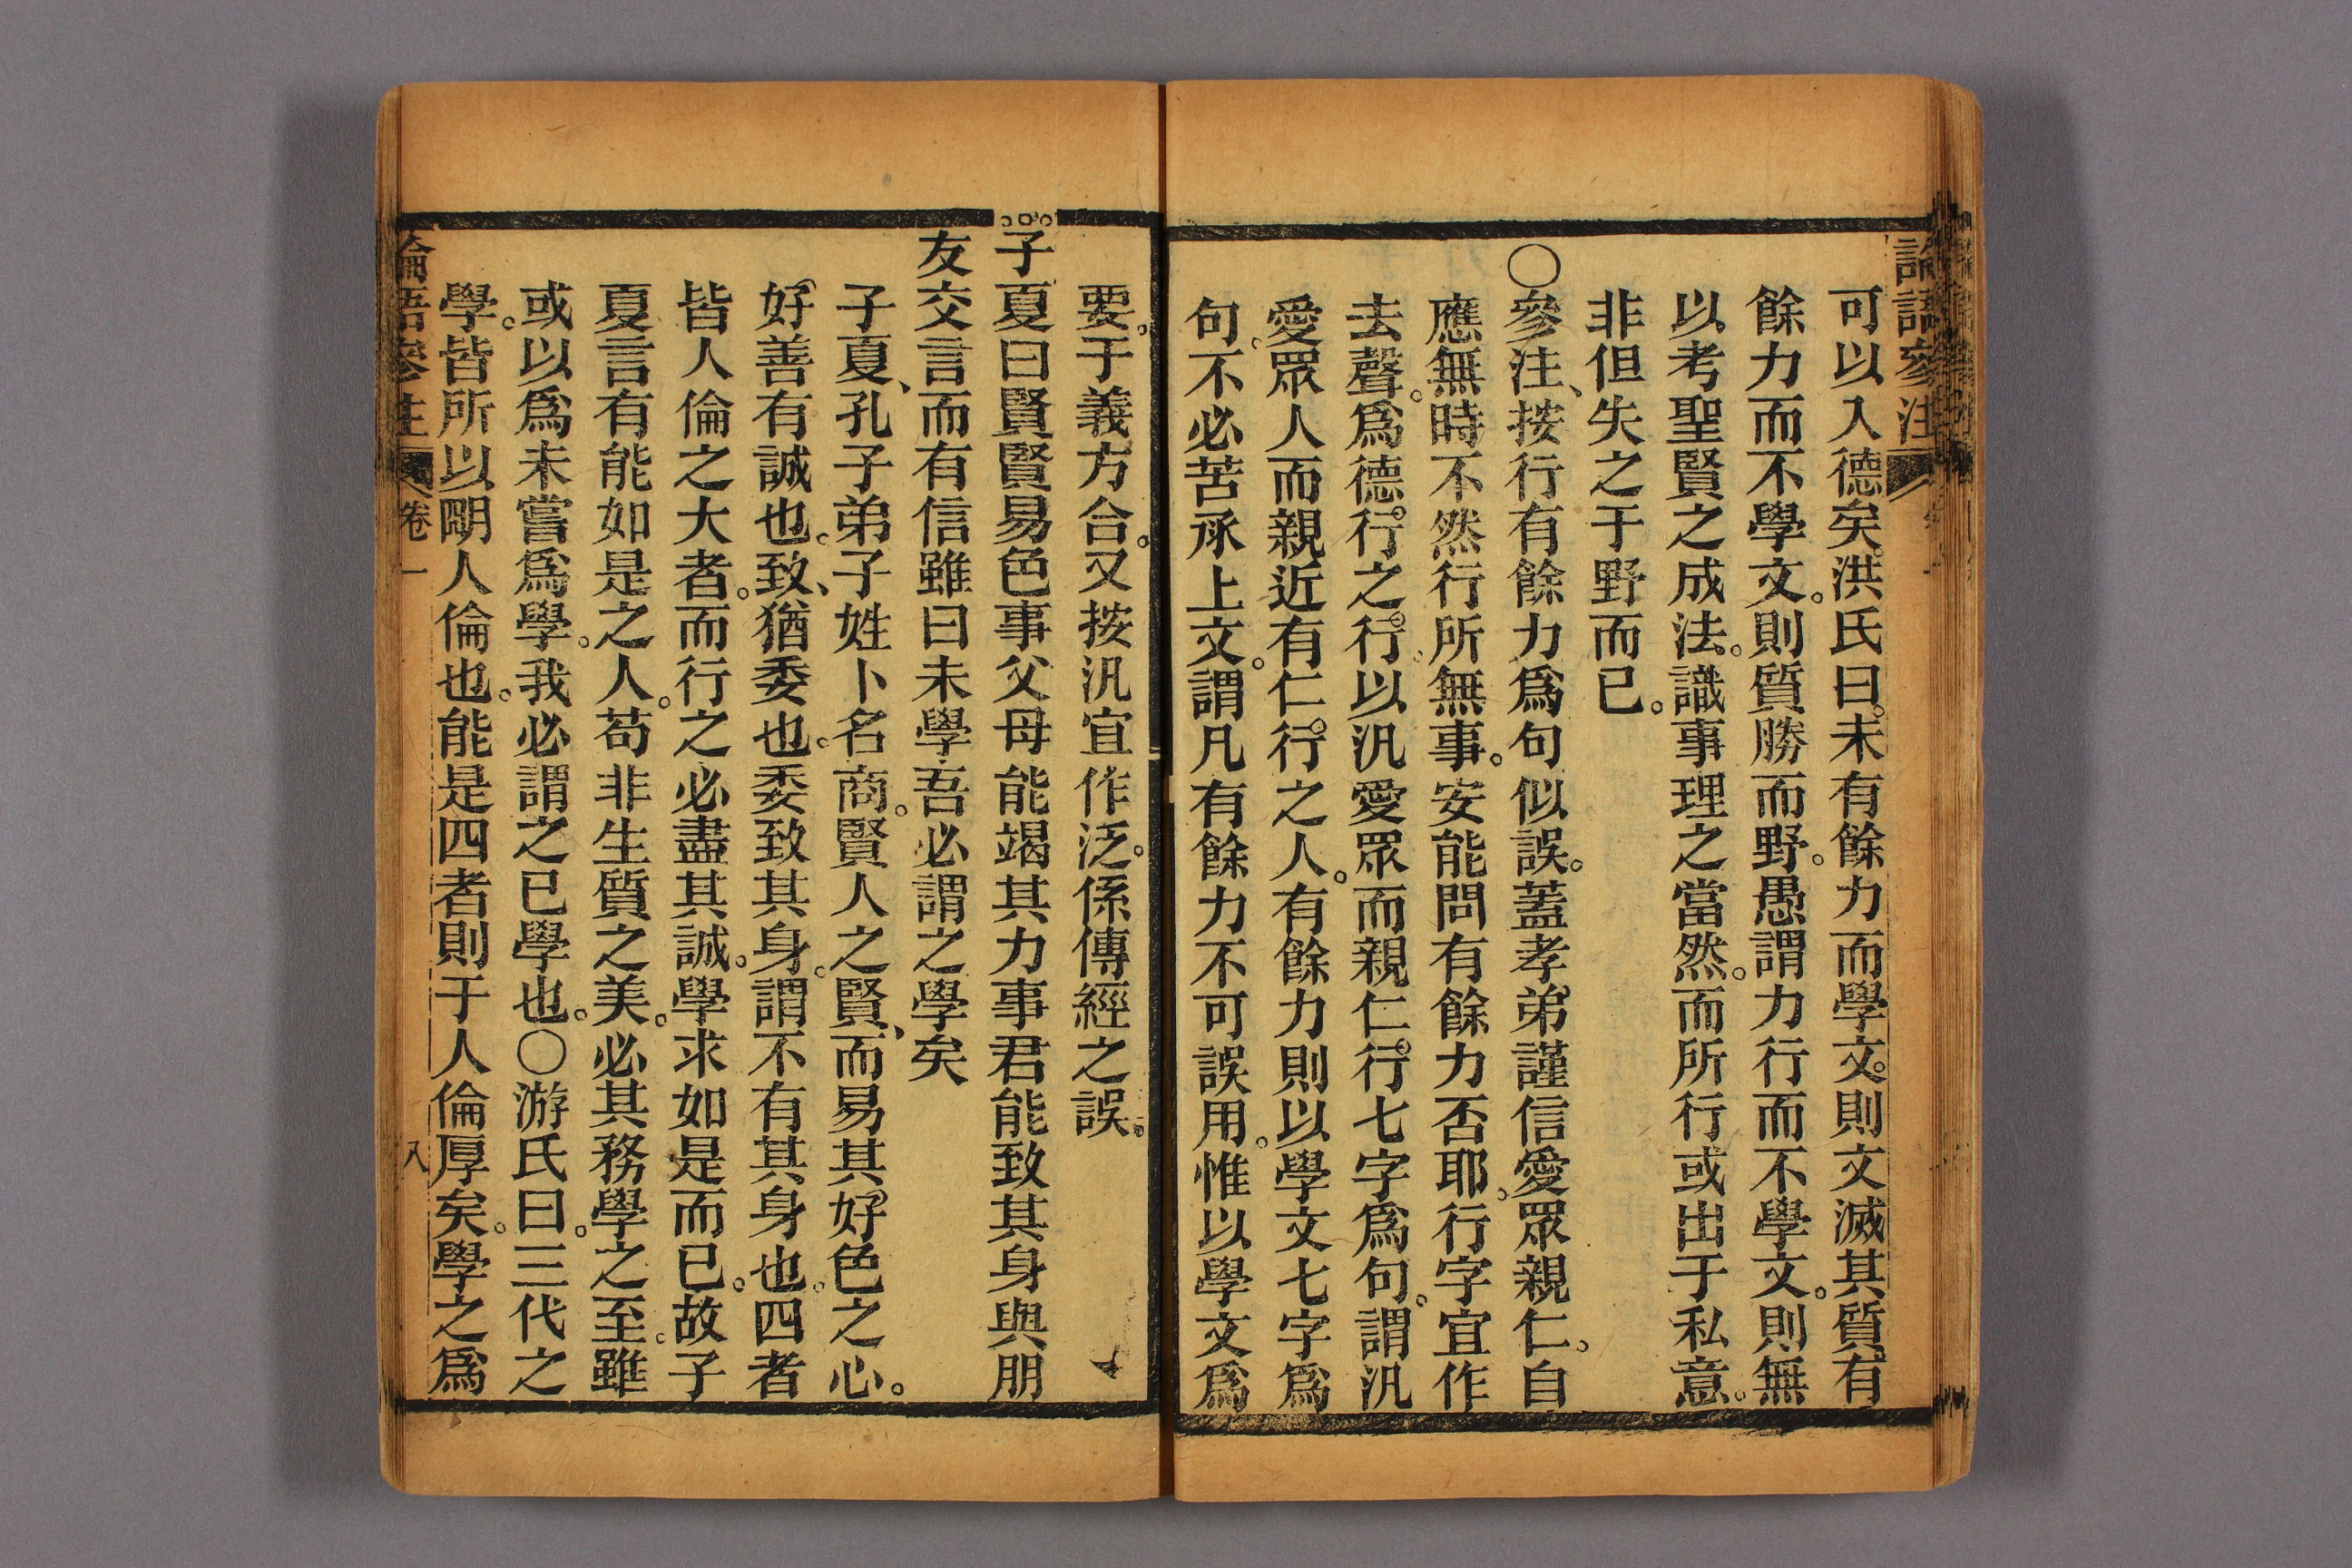 論語參注
可以入德矣。洪氏曰。未有餘力而學文。則文滅其質。有
餘力而不學文。則質勝而野。愚謂力行而不學文。則無
以考聖賢之成法。識事理之當然。而所行或出于私意。
非但失之于野而已。
〇參注、按行有餘力爲句似誤。蓋孝弟謹信愛眾親仁。自
應無時不然行所無事。安能問有餘力否耶。行字宜作
去聲。爲德行之行。以汎愛眾而親仁行七字爲句。謂汎
愛眾人而親近有仁行之人。有餘力則以學文七字爲
句。不必苦承上文。謂凡有餘力不可誤用。惟以學文爲
要。于義方合。又按汎宜作泛。係傳經之誤。
子夏曰賢賢易色事父母能竭其力事君能致其身與朋
友交言而有信雖曰未學吾必謂之學矣
子夏、孔子弟子姓卜名商。賢人之賢、而易其好色之心。
好善有誠也。致、猶委也。委致其身。謂不有其身也。四者
皆人倫之大者。而行之必盡其誠。學求如是而已。故子
夏言有能如是之人。苟非生質之美。必其務學之至。雖
或以爲未嘗爲學。我必謂之已學也。〇游氏曰。三代之
學。皆所以明人倫也。能是四者則于人倫厚矣。學之爲
論語參注 卷一 八